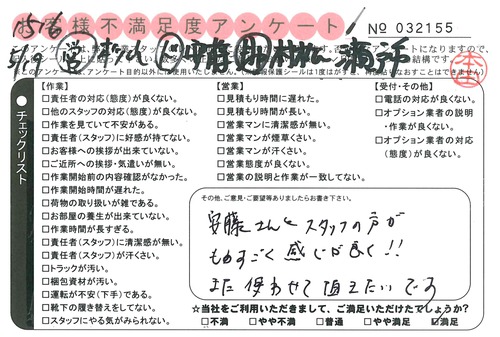 お客様不満足度アンケート
No 032155
1516
5/19
【作業】
□責任者の対応(態度)が良くない。
□他のスタッフの対応(態度)が良くない。
□作業を見ていて不安がある。
□責任者(スタッフ)に好感が持てない。
□お客様への挨拶が出来ていない。
□ご近所への挨拶・気遣いが無い。
□作業開始前の内容確認がなかった。
□作業開始時間が遅れた。
□荷物の取り扱いが雑である。
□お部屋の養生が出来ていない。
□作業時間が長すぎる。
□責任者(スタッフ)に清潔感が無い。
□責任者(スタッフ)が汗くさい。
□トラックが汚い。
□梱包資材が汚い。
□運転が不安(下手)である。
□靴下の履き替えをしてない。
□スタッフにやる気がみられない。
【営業】
□見積もり時間に遅れた。
□見積もり時間が長い。
□営業マンに清潔感が無い。
□営業マンが煙草くさい。
□営業マンが汗くさい。
□営業態度が良くない。
□営業の説明と作業が一致してない。
【受付・その他】
□電話の対応が良くない。
□オプション業者の説明
・作業が良くない。
□オプション業者の対応
(態度)が良くない。
チェックリスト
その他、ご意見・ご要望等ありましたらお書き下さい。
安藤さんとスタッフの方が
ものすごく感じが良く!!
また使わせて頂きたいです
☆当社をご利用いただきまして、ご満足いただけたでしょうか?
□不満 □やや不満 □普通 □やや満足 ☑満足